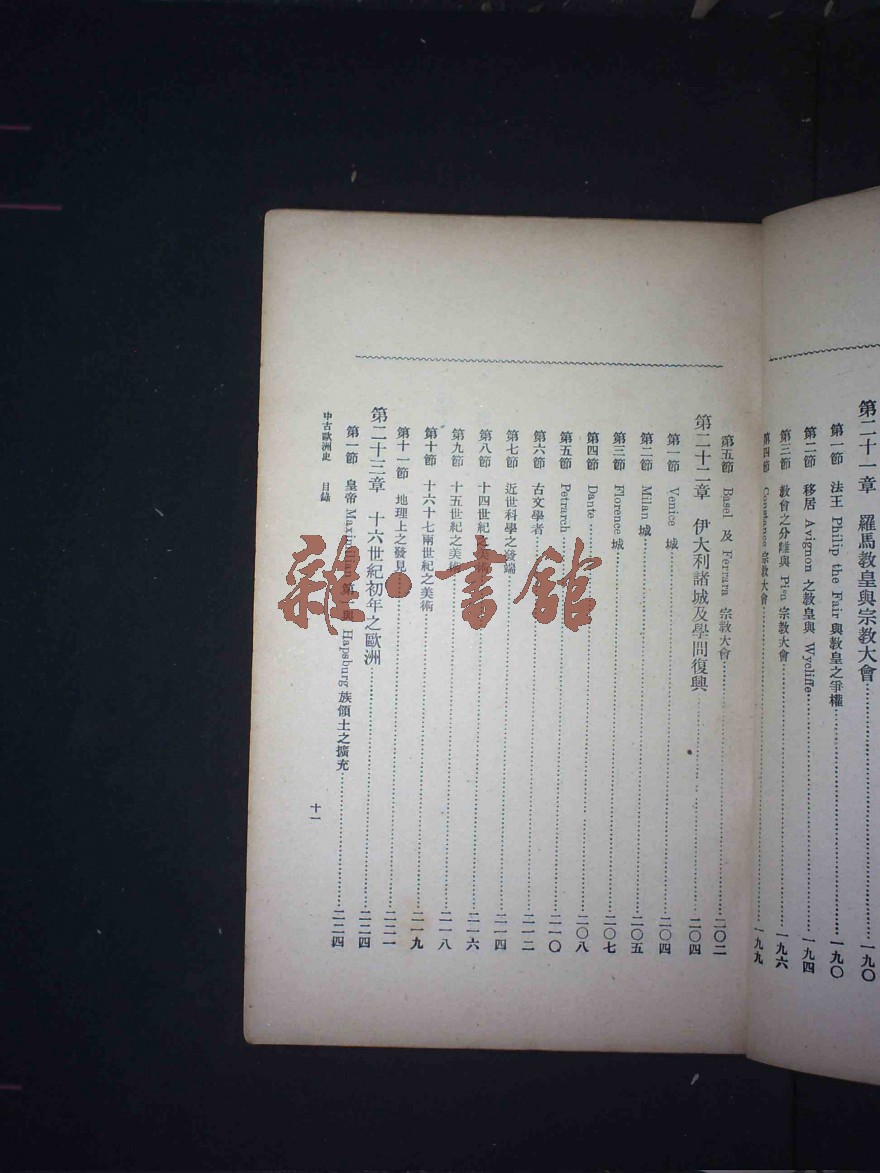 第二十一章　羅馬教皇與宗教大會……一九〇
第一節　法王 Philip the Fair 與教皇之爭權……一九〇
第二節　移居 Avignon 之教皇與 Wycliffe……一九四
第三節　教會之分離與 Pisa 宗教大會……一九六
第四節　Constance 宗教大會……一九九
第五節　Basel 及 Ferrara 宗教大會……二〇二
第二十二章　伊大利諸城及學問復興……二〇四
第一節　Venice 城……二〇四
第二節　Milan 城……二〇五
第三節　Florence 城……二〇七
第四節　Dante……二〇八
第五節　Petrarch……二一〇
第六節　古文學者……二一二
第七節　近世科學之發端……二一四
第八節　十四世紀之美術……二一六
第九節　十五世紀之美術……二一八
第十節　十六十七兩世紀之美術……二一九
第十一節　地理上之發見……二二一
第二十三章　十六世紀初年之歐洲……二二四
第一節　皇帝 Maximilian 第一與 Hapsburg 族領土之擴充……二二四
中古歐洲史　目錄　十一
雜·書館